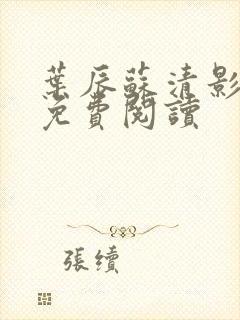 葉辰蘇清影
免費閱讀
張續